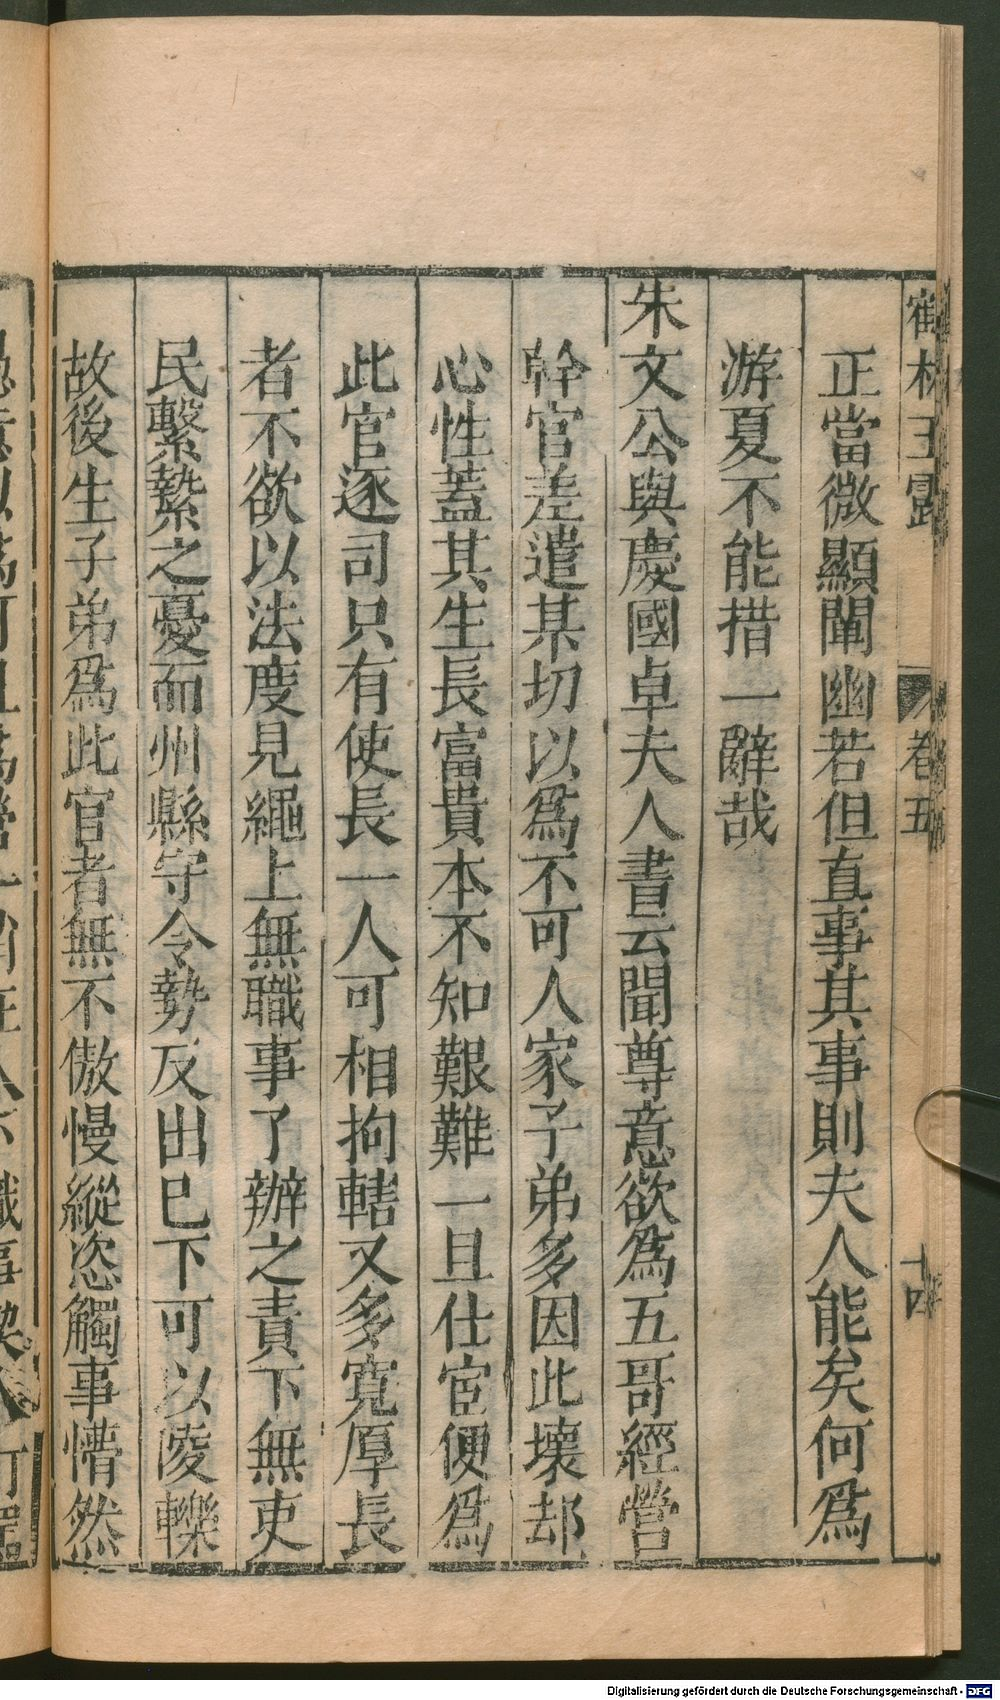 鶴林玉露 卷五 十四
正當微顯闡幽若但直事其事則夫人能矣何爲
游夏不能措一辭哉
朱文公與慶國卓夫人書云聞尊意欲爲五哥經營
幹官差遣某切以爲不可人家子弟多因此壞却
心性蓋其生長富貴本不知艱難一旦仕宦便爲
此官逐司只有使長一人可相拘轄又多寬厚長
者不欲以法度見繩上無職事了辦之責下無吏
民繫縶之憂而州縣守令勢反出已下可以陵轢
故後生子弟爲此官者無不傲慢縱恣觸事懵然
Digitalisierung gefördert durch die Deutsche Forschungsgemeinschaft - DFG